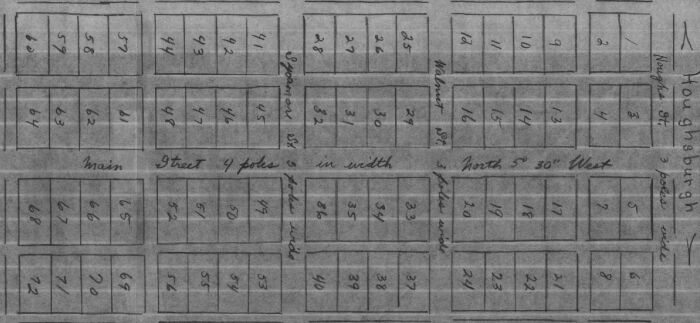 Houghsburgh
Houghs St. 3 poles wide
Walnut St 3 poles wide
Sycamore St 3 poles wide
60 59 58 57 44 43 42 41 28 27 26 25 12 11 10 9 2 1
64 63 62 61 48 47 46 45 32 31 30 29 16 15 14 13 4 3
Main Street 4 poles in width North 5° 30" West
68 67 66 65 52 51 50 49 36 35 34 33 20 19 18 17 7 5
72 71 70 69 56 55 54 53 40 39 38 37 24 23 22 21 8 6